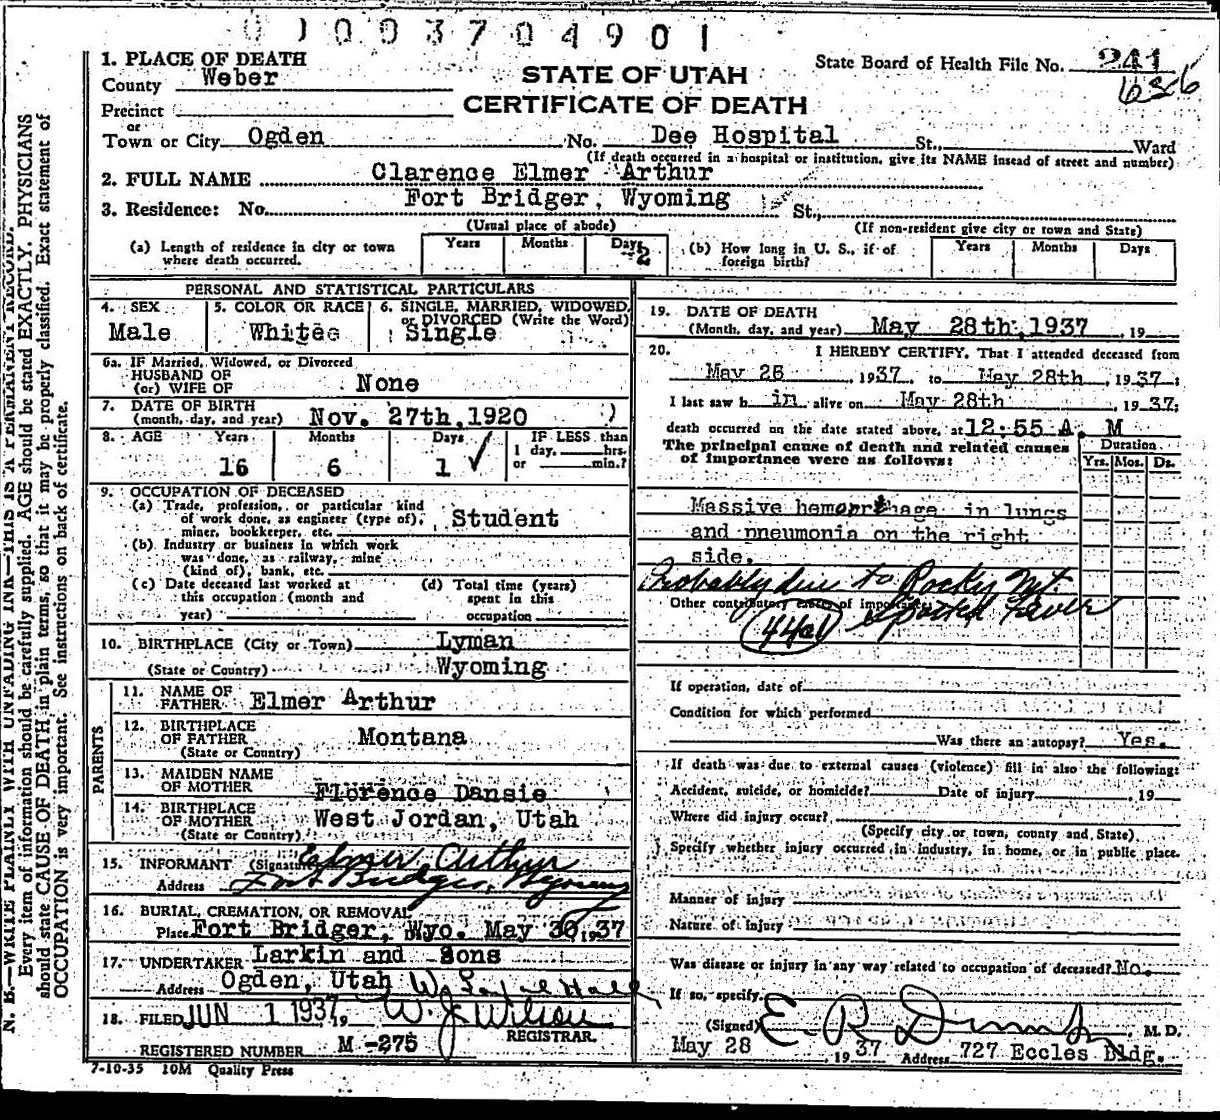 0100370490 1
1. PLACE OF DEATH
County Weber
STATE OF UTAH
State Board of Health File No. 241
636
Precinct
CERTIFICATE OF DEATH
or
Town or City Ogden No. Dee Hospital St., Ward
(If death occurred in a hospital or institution, give its NAME insead of street and number)
2. FULL NAME Clarence Elmer Arthur
3. Residence: No. Fort Bridger, Wyoming St.,
(Usual place of abode) (If non-resident give city or town and State)
(a) Length of residence in city or town where death occurred. Years Months Days 2 (b) How long in U. S., if of foreign birth? Years Months Days
PERSONAL AND STATISTICAL PARTICULARS
4. SEX Male
5. COLOR OR RACE Whitee
6. SINGLE, MARRIED, WIDOWED, or DIVORCED (Write the Word) Single
6a. IF Married, Widowed, or Divorced
HUSBAND OF
(or) WIFE OF None
7. DATE OF BIRTH
(month, day, and year) Nov. 27th, 1920
8. AGE Years Months Days IF LESS than
16 6 1 ✓ 1 day, hrs.
or min.?
9. OCCUPATION OF DECEASED
(a) Trade, profession, or particular kind
of work done, as engineer (type of),
miner, bookkeeper, etc. Student
(b) Industry or business in which work
was done, as railway, mine
(kind of), bank, etc.
(c) Date deceased last worked at
this occupation (month and
year)
(d) Total time (years)
spent in this
occupation
10. BIRTHPLACE (City or Town) Lyman
(State or Country) Wyoming
PARENTS
11. NAME OF
FATHER Elmer Arthur
12. BIRTHPLACE
OF FATHER Montana
(State or Country)
13. MAIDEN NAME
OF MOTHER Florence Dansie
14. BIRTHPLACE
OF MOTHER West Jordan, Utah
(State or Country)
15. INFORMANT (Signature) Elmer Arthur
Address Fort Bridger, Wyoming
16. BURIAL, CREMATION, OR REMOVAL
Place Fort Bridger, Wyo. May 30, 1937
17. UNDERTAKER Larkin and Sons
Address Ogden, Utah
18. FILED JUN 1 1937, 19 W. J. Wilson
REGISTRAR.
REGISTERED NUMBER M -275
7-10-35 10M Quality Press
19. DATE OF DEATH
(Month, day, and year) May 28th, 1937, 19
20. I HEREBY CERTIFY, That I attended deceased from
May 26, 1937, to May 28th, 1937;
I last saw h in alive on May 28th, 1937;
death occurred on the date stated above, at 12:55 A. M
The principal cause of death and related causes
of importance were as follows:
Duration
Yrs. Mos. Ds.
Massive hemorrhage in lungs
and pneumonia on the right
side.
Probably due to Rocky Mt.
Spotted Fever
Other contributory causes of importance:
If operation, date of
Condition for which performed
Was there an autopsy? Yes.
If death was due to external causes (violence) fill in also the following:
Accident, suicide, or homicide? Date of injury, 19
Where did injury occur?
(Specify city or town, county and State)
Specify whether injury occurred in industry, in home, or in public place.
Manner of injury
Nature of injury
Was disease or injury in any way related to occupation of deceased? No.
If so, specify
(Signed) E. R. M. D.
May 28, 1937 Address 727 Eccles Bldg.
N. B.—WRITE PLAINLY WITH UNFADING INK—THIS IS A PERMANENT RECORD.
Every item of information should be carefully supplied. AGE should be stated EXACTLY. PHYSICIANS
should state CAUSE OF DEATH in plain terms, so that it may be properly classified. Exact statement of
OCCUPATION is very important. See instructions on back of certificate.